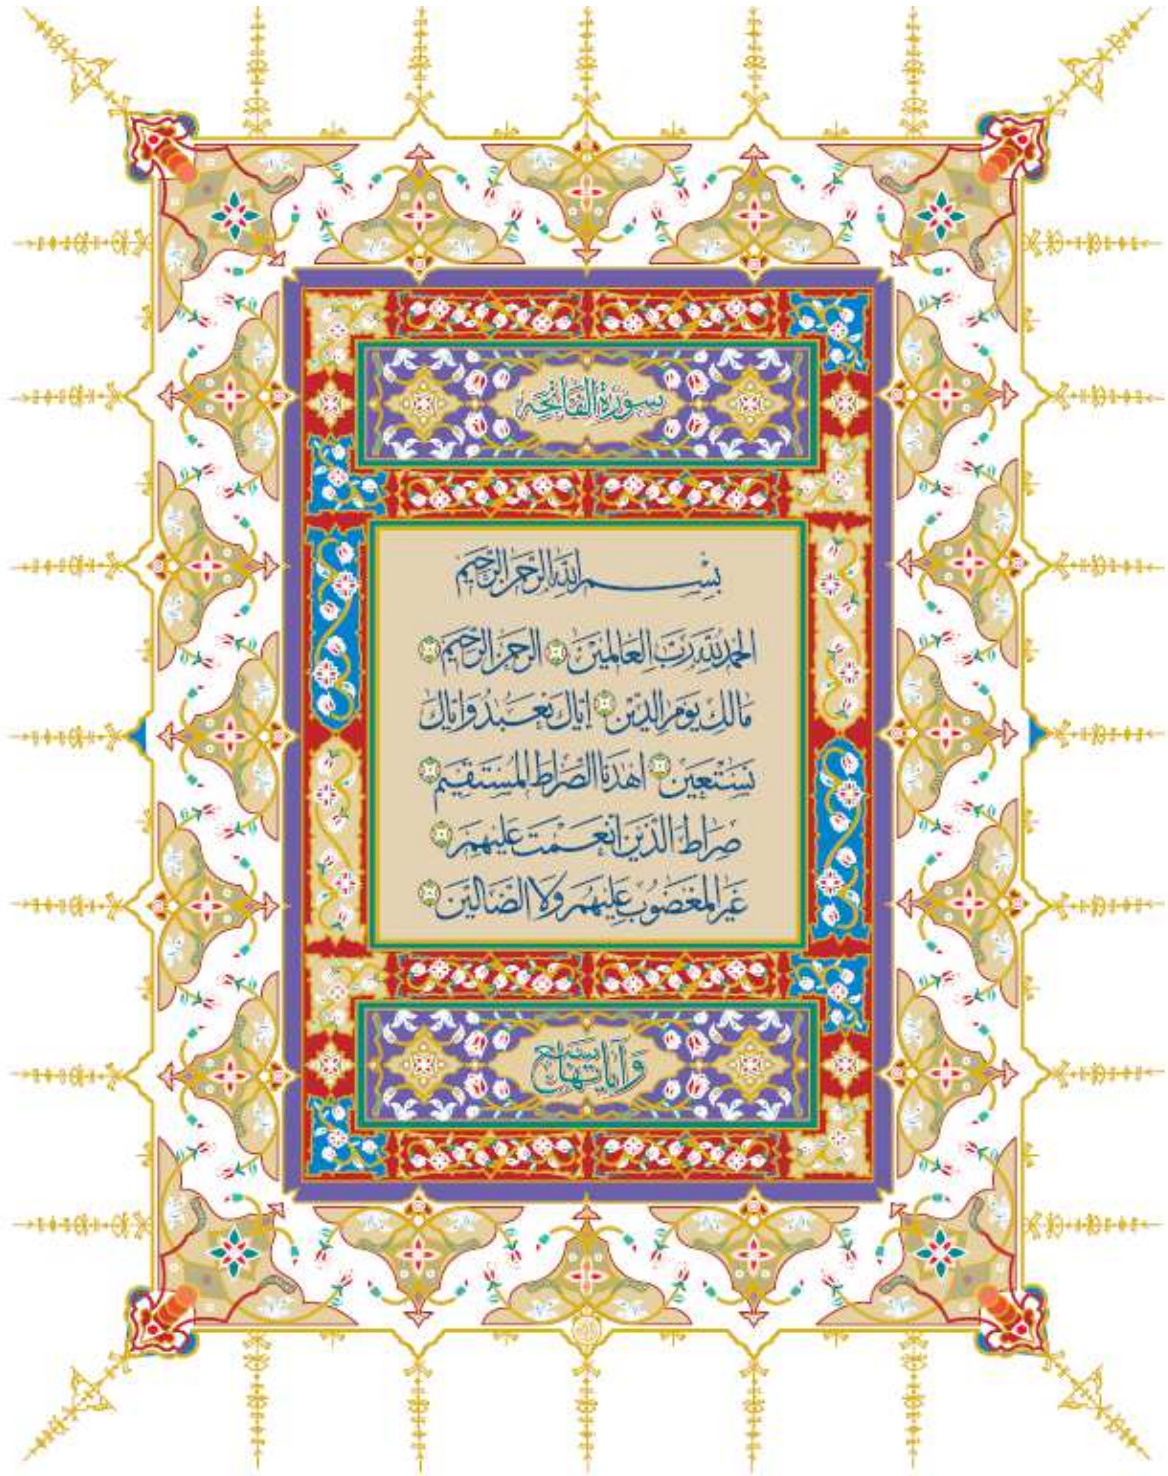 سورة الفاتحة
بسم الله الرحمن الرحيم
الحمد لله رب العالمين الرحمن الرحيم
مالك يوم الدين إياك نعبد وإياك
نستعين اهدنا الصراط المستقيم
صراط الذين أنعمت عليهم
غير المغضوب عليهم ولا الضالين
وآياتها سبع